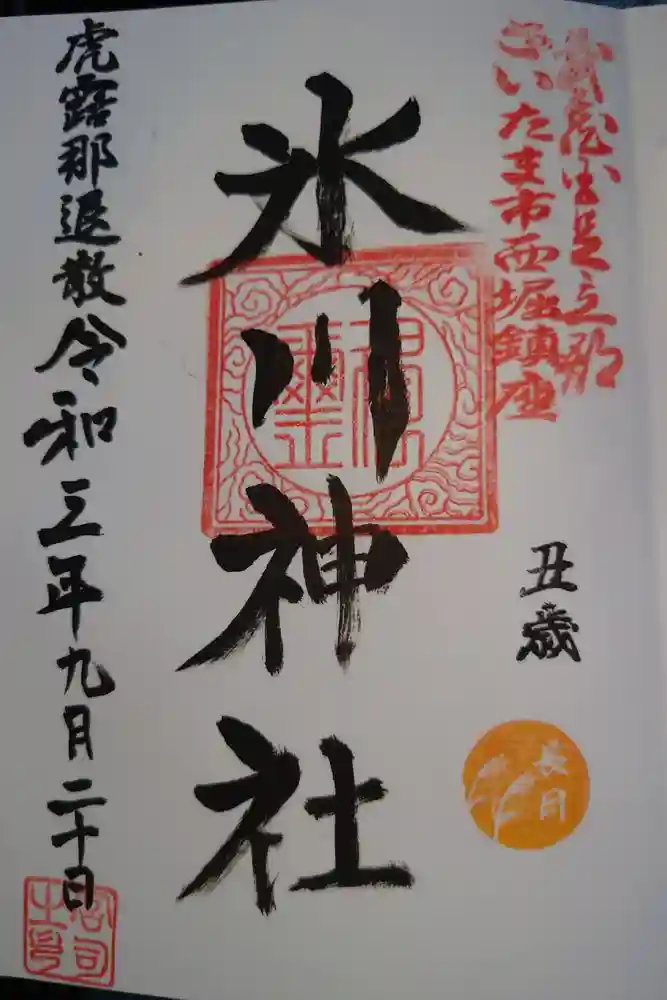 武蔵国足立郡
さいたま市西堀鎮座
丑歳
長月
氷川神社
虎露那退散令和三年九月二十日
宮司之印